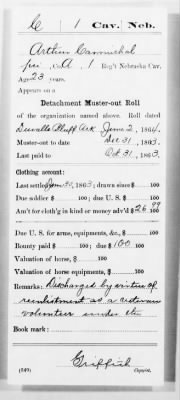 C | 1 | Cav. | Neb.
Arthur Carmichal
pri, Co. A, 1 Reg't Nebraska Cav.
Age 23 years.
Appears on a
Detachment Muster-out Roll
of the organization named above. Roll dated
Duvalls Bluff Ark, June 2, 1864.
Muster-out to date Dec 31, 1863.
Last paid to Oct 31, 1863.
Clothing account:
Last settled June 30, 1863; drawn since $ 100
Due soldier $ 100; due U. S. $ 100
Am't for cloth'g in kind or money adv'd $ 26 99/100
Due U. S. for arms, equipments, &c., $ 100
Bounty paid $ 100; due $ 100 100
Valuation of horse, $ 100
Valuation of horse equipments, $ 100
Remarks: Discharged by virtue of
reenlistment as a veteran
volunteer under etc
Book mark:
Griffith
(349) Copyist.